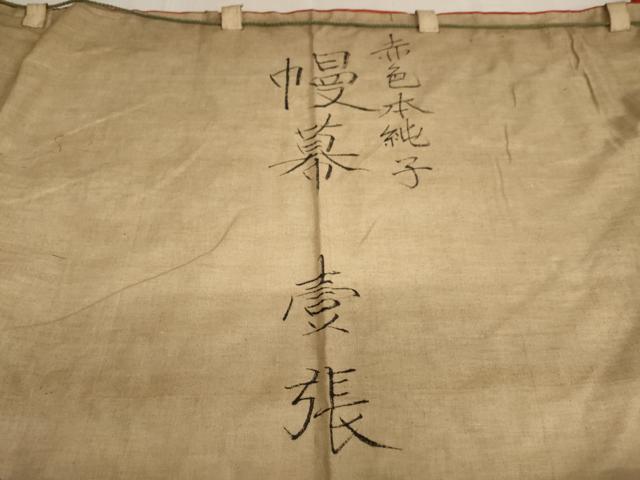 赤色本純子
幔幕 壹張